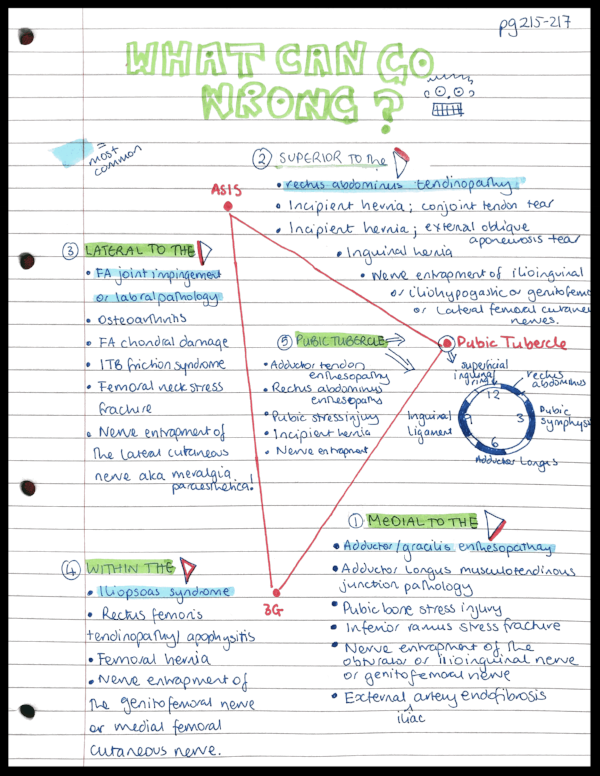 pg 215-217
WHAT CAN GO
WRONG?
= most
common
② SUPERIOR TO the
• rectus abdominus tendinopathy
• Incipient hernia; conjoint tendon tear
• Incipient hernia; external oblique
aponeurosis tear
• Inguinal hernia
• Nerve entrapment of ilioinguinal
or iliohypogastic or genitofemo
or Lateral femoral cutane
nerves.
ASIS
③ LATERAL TO THE
• FA joint impingement
or labral pathology
• Osteoarthritis
• FA chondral damage
• ITB friction syndrome
• Femoral neck stress
fracture
• Nerve entrapment of
the lateral cutaneous
nerve aka meralgia
paraesthetica!
⑤ PUBIC TUBERCLE
• Adductor tendon
enthesopathy
• Rectus abdominus
enthesopathy
• Pubic stress injury
• Incipient hernia
• Nerve entrapment
Pubic Tubercle
superficial
inguinal
ring
rectus
abdominus
12
3
6
9
Inguinal
Ligament
Pubic
symphysis
Adductor Longus
① MEDIAL TO THE
• Adductor/gracilis enthesopathy
• Adductor Longus musculotendinous
junction pathology
• Pubic bone stress injury
• Inferior ramus stress fracture
• Nerve entrapment of the
obturator or ilioinguinal nerve
or genitofemoral nerve
• External artery endofibrosis
iliac
④ WITHIN THE
• Iliopsoas syndrome
• Rectus femoris
tendinopathy/ apophysitis
• Femoral hernia
• Nerve entrapment of
the genitofemoral nerve
or medial femoral
cutaneous nerve.
3G